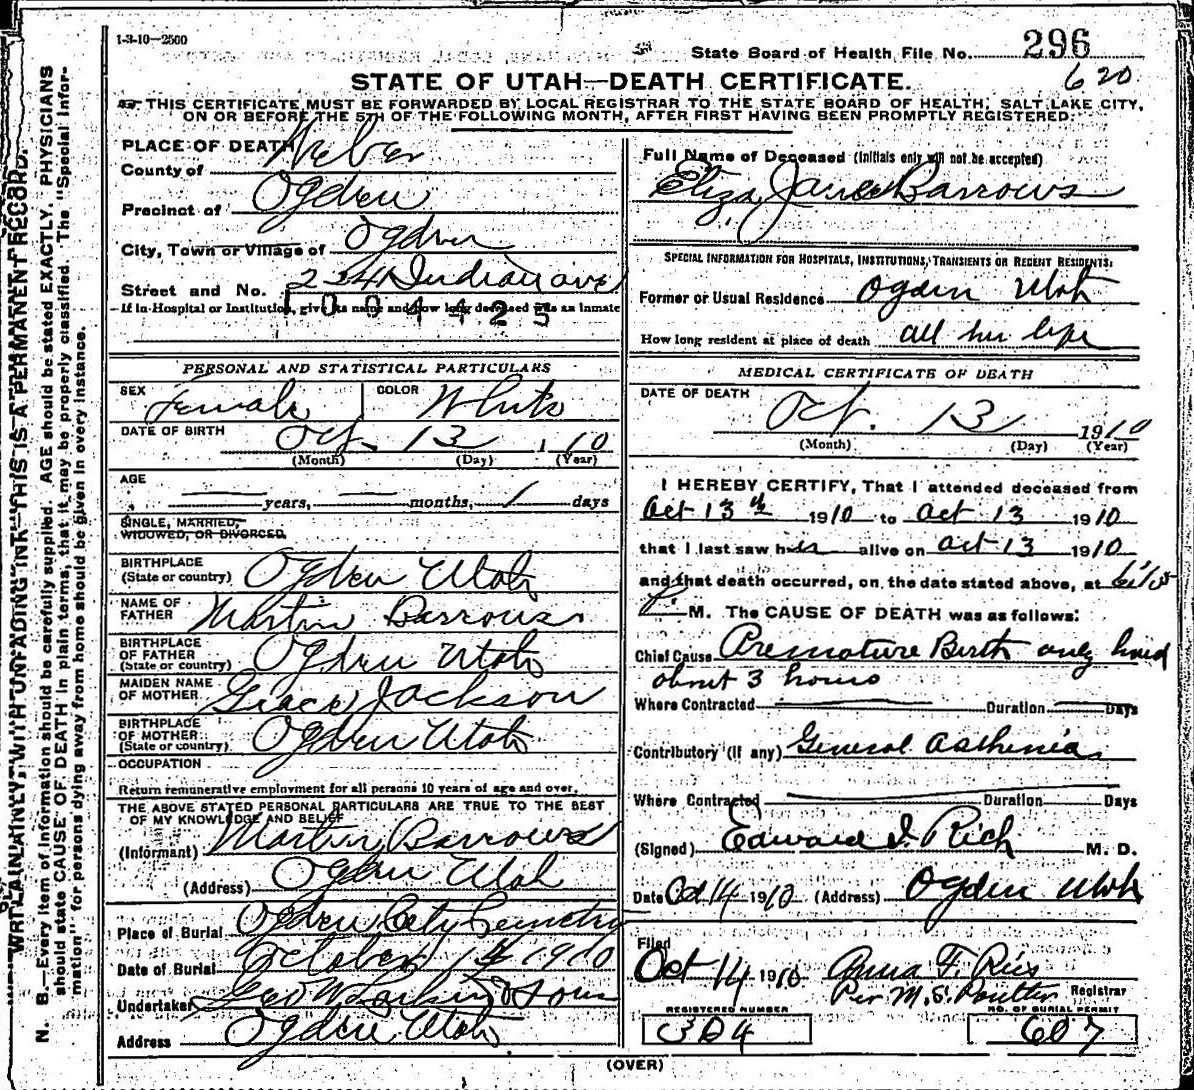 1-3-10-2500
State Board of Health File No. 296
620
STATE OF UTAH—DEATH CERTIFICATE.
THIS CERTIFICATE MUST BE FORWARDED BY LOCAL REGISTRAR TO THE STATE BOARD OF HEALTH, SALT LAKE CITY,
ON OR BEFORE THE 5TH OF THE FOLLOWING MONTH, AFTER FIRST HAVING BEEN PROMPTLY REGISTERED.
WRITE PLAINLY, WITH UNFADING INK—THIS IS A PERMANENT RECORD.
N. B.—Every item of information should be carefully supplied. AGE should be stated EXACTLY. PHYSICIANS
should state CAUSE OF DEATH in plain terms, that it may be properly classified. The "Special Infor-
mation" for persons dying away from home should be given in every instance.
PLACE OF DEATH
County of Weber
Precinct of Ogden
City, Town or Village of Ogden
Street and No. 234 Indian ave
If in Hospital or Institution, give its name and how long deceased was an inmate
1004425
PERSONAL AND STATISTICAL PARTICULARS
SEX Female COLOR White
DATE OF BIRTH Oct. 13 1910
(Month) (Day) (Year)
AGE
— years, — months, 1 days
SINGLE, MARRIED,
WIDOWED, OR DIVORCED
BIRTHPLACE
(State or country) Ogden Utah
NAME OF
FATHER Martin Barrows
BIRTHPLACE
OF FATHER
(State or country) Ogden Utah
MAIDEN NAME
OF MOTHER Grace Jackson
BIRTHPLACE
OF MOTHER
(State or country) Ogden Utah
OCCUPATION
Return remunerative employment for all persons 10 years of age and over.
THE ABOVE STATED PERSONAL PARTICULARS ARE TRUE TO THE BEST
OF MY KNOWLEDGE AND BELIEF
(Informant) Martin Barrows
(Address) Ogden Utah
Place of Burial Ogden City Cemetry
Date of Burial October 14 1910
Undertaker Geo W Larkin & Sons
Address Ogden Utah
Full Name of Deceased (Initials only will not be accepted)
Eliza Jane Barrows
SPECIAL INFORMATION FOR HOSPITALS, INSTITUTIONS, TRANSIENTS OR RECENT RESIDENTS:
Former or Usual Residence Ogden Utah
How long resident at place of death all her life
MEDICAL CERTIFICATE OF DEATH
DATE OF DEATH
Oct. 13 1910
(Month) (Day) (Year)
I HEREBY CERTIFY, That I attended deceased from
Oct 13th 1910 to Oct 13 1910
that I last saw her alive on Oct 13 1910
and that death occurred, on the date stated above, at
P. M. The CAUSE OF DEATH was as follows:
Chief Cause Premature Birth only lived
about 3 hours
Where Contracted Duration Days
Contributory (if any) General Asthenia
Where Contracted Duration Days
(Signed) Edward I. Rich M. D.
Date Oct 14 1910 (Address) Ogden Utah
Filed
Oct 14 1910 Anna F. Ries
Per M. S. Poulter Registrar
REGISTERED NUMBER NO. OF BURIAL PERMIT
304 607
(OVER)